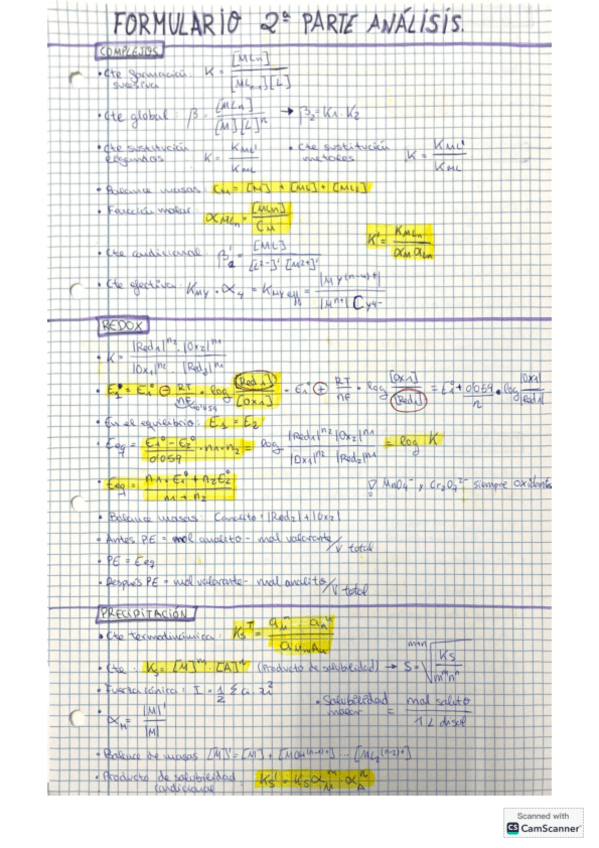 FORMULARIO 2ª PARTE ANÁLISIS.
COMPLEJOS
• Cte formación sucesiva K = [MLn] / [MLn-1][L]
• Cte global: β = [MLn] / [M][L]^n → β2 = K1 · K2
• Cte sustitución ligandos K = KML' / KML • Cte sustitución metales K = KM'L / KML
• Balance masas: CM = [M] + [ML] + [ML2]
• Fracción molar αMLn = [MLn] / CM
K' = KMLn / αM αLn
• Cte condicional β'2 = [ML] / [L²⁻]' [M²⁺]'
• Cte efectiva: KMY · α4 = KMYeff = |MY^(n-4)+| / |M^n+| CY4-
REDOX
• K = |Red1|^n2 · |Ox2|^n1 / |Ox1|^n2 · |Red2|^n1
• E1 = E1° ⊖ RT/nF · log [Red1]/[Ox1] = E1° ⊕ RT/nF · log [Ox1]/[Red1] = E1° + 0'059/n · log |Ox1|/|Red1|
0'059
• En el equilibrio: E1 = E2
• Eeq = E1° - E2° / 0'059 · n1 · n2 = log |Red1|^n2 |Ox2|^n1 / |Ox1|^n2 |Red2|^n1 = log K
• Eeq = n1 · E1° + n2E2° / n1 + n2
MnO4⁻ y Cr2O7²⁻ siempre oxidantes
• Balance masas = |Red2| + |Ox2|
• Antes PE = mol analito - mol valorante / V total
• PE = Eeq
• Después PE = mol valorante - mol analito / V total
PRECIPITACIÓN
• Cte termodinámica: Ks^T
• Cte: Ks = [M]^m · [A]^n (Producto de solubilidad) → S = m+n√(Ks / m^m n^n)
• Fuerza iónica: I = 1/2 Σ ci · zi²
• Solubilidad molar = mol soluto / 1 L disol
• αM = |M|' / |M|
• Balance de masas [M]' = [M] +
• Producto de solubilidad condicional Ks' = Ks αM^m αA^n
Scanned with
CS CamScanner